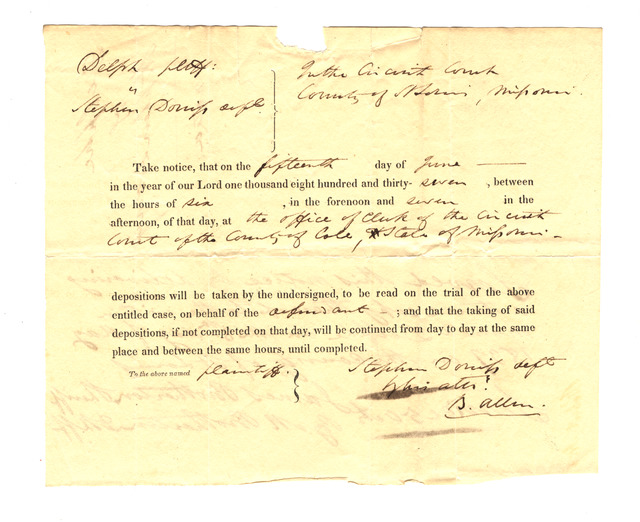 Delph pltff:
In the Circuit Court
vs
County of St Louis, Missouri.
Stephen Doriss deft.
Take notice, that on the fifteenth day of June
in the year of our Lord one thousand eight hundred and thirty- seven , between
the hours of six , in the forenoon and seven in the
afternoon, of that day, at the office of Clerk of the Circuit
Court of the County of Cole, & State of Missouri -
depositions will be taken by the undersigned, to be read on the trial of the above
entitled case, on behalf of the defendant - ; and that the taking of said
depositions, if not completed on that day, will be continued from day to day at the same
place and between the same hours, until completed.
To the above named plaintiff.
Stephen Doriss deft
by his atty.
B. Allen.